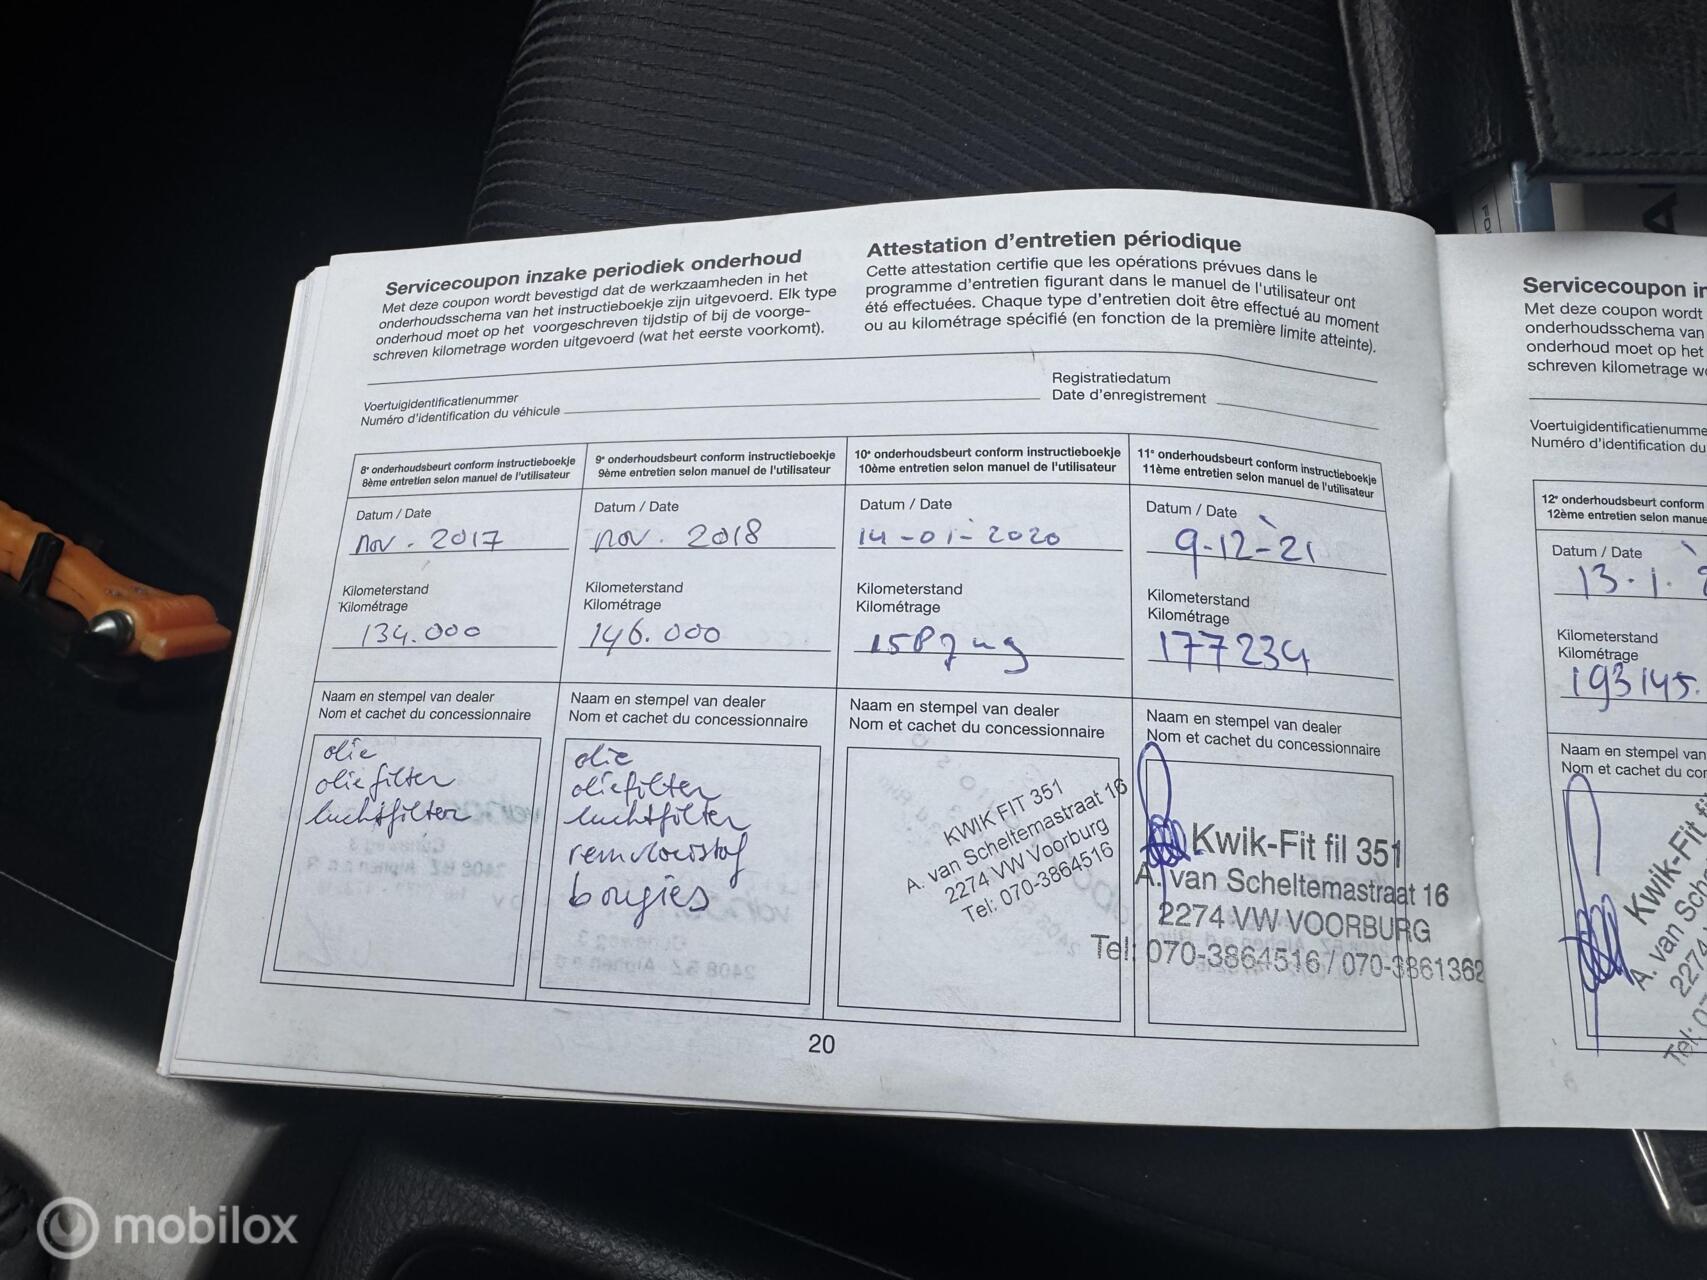 Servicecoupon inzake periodiek onderhoud
Met deze coupon wordt bevestigd dat de werkzaamheden in het
onderhoudsschema van het instructieboekje zijn uitgevoerd. Elk type
onderhoud moet op het voorgeschreven tijdstip of bij de voorge-
schreven kilometrage worden uitgevoerd (wat het eerste voorkomt).
Attestation d'entretien périodique
Cette attestation certifie que les opérations prévues dans le
programme d'entretien figurant dans le manuel de l'utilisateur ont
été effectuées. Chaque type d'entretien doit être effectué au moment
ou au kilométrage spécifié (en fonction de la première limite atteinte).
Voertuigidentificatienummer
Numéro d'identification du véhicule
Registratiedatum
Date d'enregistrement
8e onderhoudsbeurt conform instructieboekje
8ème entretien selon manuel de l'utilisateur
Datum / Date
nov. 2017
Kilometerstand
Kilométrage
134.000
Naam en stempel van dealer
Nom et cachet du concessionnaire
olie
oliefilter
luchtfilter
9e onderhoudsbeurt conform instructieboekje
9ème entretien selon manuel de l'utilisateur
Datum / Date
nov. 2018
Kilometerstand
Kilométrage
146.000
Naam en stempel van dealer
Nom et cachet du concessionnaire
olie
oliefilter
luchtfilter
remvloeistof
bougies
10e onderhoudsbeurt conform instructieboekje
10ème entretien selon manuel de l'utilisateur
Datum / Date
14-01-2020
Kilometerstand
Kilométrage
Naam en stempel van dealer
Nom et cachet du concessionnaire
KWIK FIT 351
A. van Scheltemastraat 16
2274 VW Voorburg
Tel: 070-3864516
11e onderhoudsbeurt conform instructieboekje
11ème entretien selon manuel de l'utilisateur
Datum / Date
9-12-21
Kilometerstand
Kilométrage
177234
Naam en stempel van dealer
Nom et cachet du concessionnaire
Kwik-Fit fil 351
A. van Scheltemastraat 16
2274 VW VOORBURG
Tel: 070-3864516 / 070-3861362
20
Servicecoupon in
Met deze coupon wordt
onderhoudsschema van
onderhoud moet op het
schreven kilometrage wo
Voertuigidentificatienumme
Numéro d'identification du
12e onderhoudsbeurt conform
12ème entretien selon manue
Datum / Date
13.1.
Kilometerstand
Kilométrage
193145.
Naam en stempel van
Nom et cachet du con
Kwik-Fit
A. van Sche
2274
Tel: 07
mobilox